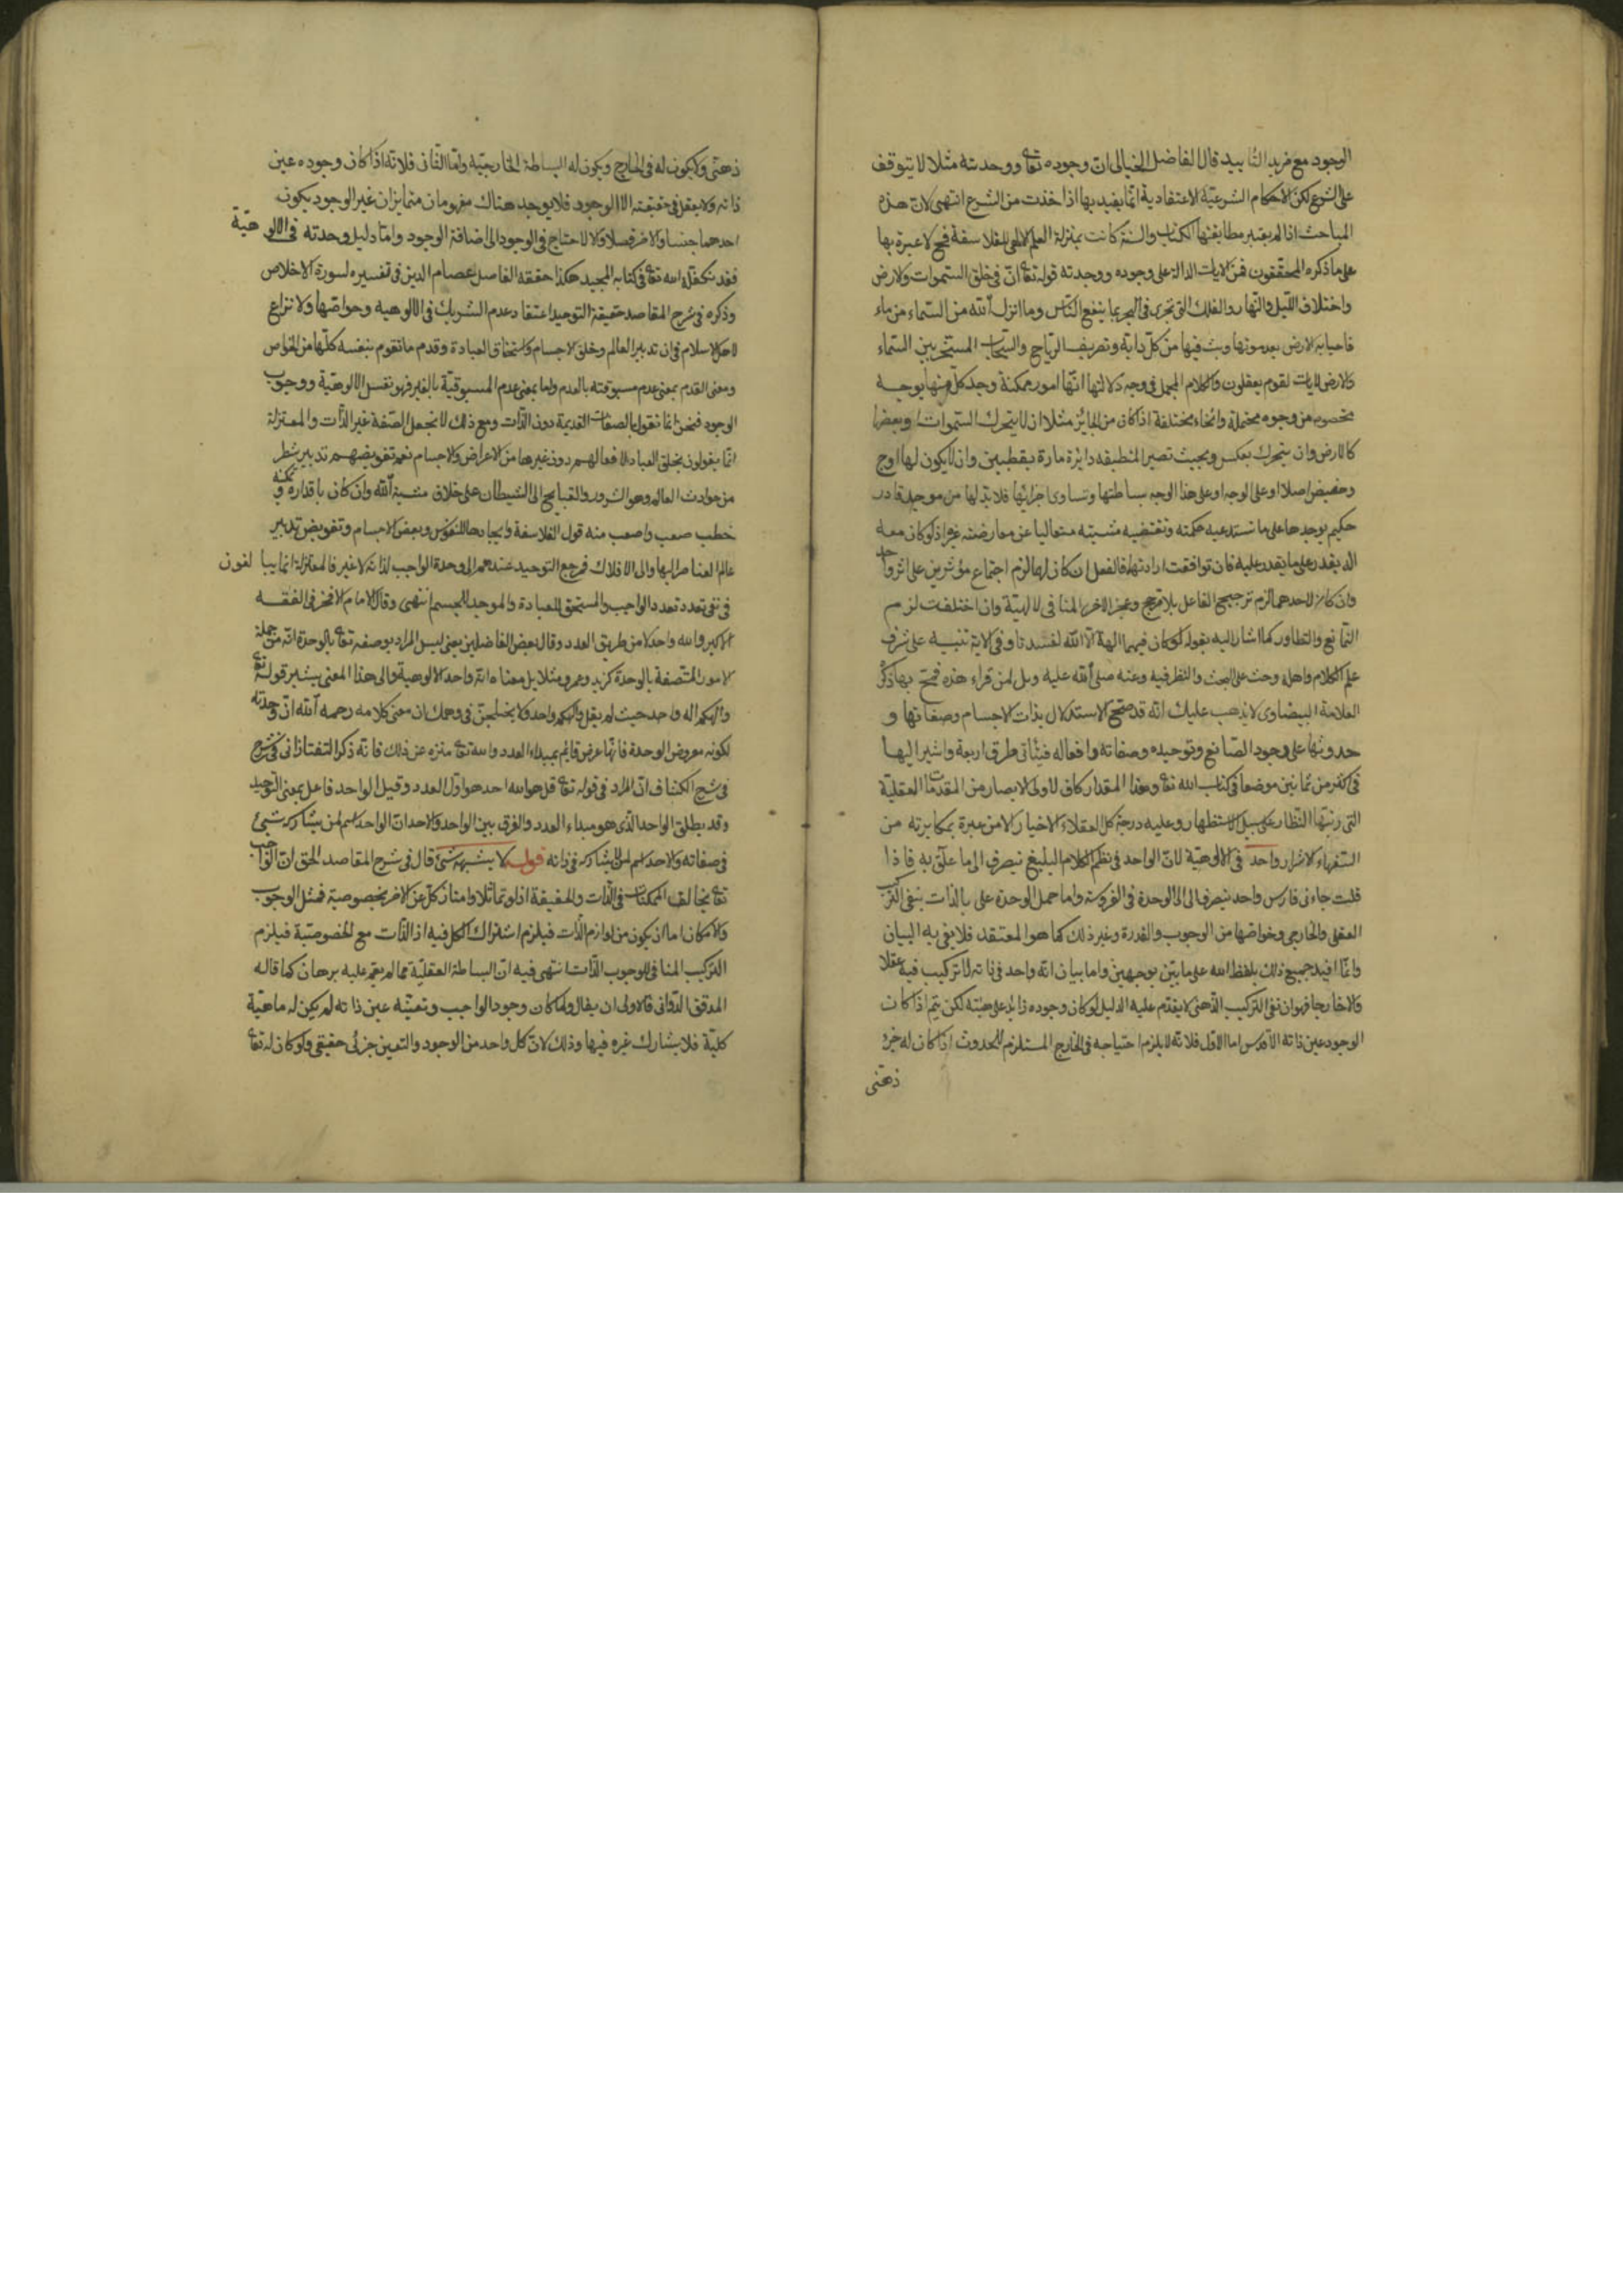 الوجود مع مزيد التأييد قال الفاضل الخيالى ان وجوده تعا ووحدته مثلا لا يتوقف
على الشرع لكن الاحكام الشرعية الاعتقادية انما يفيد بها اذا اخذت من الشرع انتهى لان هذه
المباحث اذا لم يعتبر مطابقتها الكتاب والسنة كانت بمنزلة العلم الالهى للفلاسفة فح لا عبرة بها
على ما ذكره المحققون فمن الايات الدالة على وجوده ووحدته قوله تعا ان فى خلق السموات والارض
واختلاف الليل والنهار والفلك التى تجرى فى البحر بما ينفع الناس وما انزل الله من السماء من ماء
فاحيا به الارض بعد موتها وبث فيها من كل دابة وتصريف الرياح والسحاب المسخر بين السماء
والارض لايات لقوم يعقلون والكلام المجمل فى وجه دلالتها انها امور ممكنة وجد كل منها بوجه
مخصوص من وجوه محتملة وانحاء مختلفة اذ كان من الجائز مثلا ان لا يتحرك السموات او بعضها
كالارض وان يتحرك بعكس وبحيث تصير المنطبقه دائرة مارة بقطبين وان لا يكون لها اوج
وحضيض اصلا او على الوجه او على هذا الوجه بساطتها وتساوى اجزائها فلا بد لها من موجد قادر
حكيم يوجدها على ما تستدعيه حكمته وتقتضيه مشيته متعاليا عن معارضة غيره اذ لو كان معه
اله يقدر على ما يقدر عليه فان توافقت ارادتهما فالفعل ان كان لهما لزم اجتماع مؤثرين على اثر واحد
وان كان لاحدهما لزم ترجيح الفاعل بلا مرجح وعجز الاخر المنافى لالهيته وان اختلفت لزم
التمانع والتطاور كما اشار اليه بقوله لو كان فيهما الهة الا الله لفسدتا وفى الاية تنبيه على شرف
علم الكلام واهله وحث على البحث والنظر فيه وعنه صلى الله عليه ويل لمن قراء هذه فمج بها ذكر
العلامة البيضاوى لا يذهب عليك انه قد صح الاستدلال بذات الاجسام وصفاتها و
حدوثها على وجود الصانع وتوحيده وصفاته وافعاله فيأتى طرق اربعة واشير اليها
فى اكثر من ثمانين موضعا فى كتاب الله تعا وهذا المقدار كاف لاولى الابصار من المقدمات العقلية
التى رتبها النظار على سبيل الاستظهار وعليه درجة كل العقلاء الاخيار الا من عبرة بمكابرته من
السفهاء الاشرار واحد فى الالوهية لان الواحد فى نظم الكلام البليغ ينصرف الى ما علق به فاذا
قلت جاءنى فارس واحد ينصرف الى الوحدة فى الفروسة واما حمل الوحدة على بالذات بنفى التركيب
العقلى والخارجى وخواصها من الوجوب والقدرة وغير ذلك كما هو المعتقد فلا يفى به البيان
وانما افيد جميع ذلك بلفظ الله على ما بيّن بوجهين واما بيان انه واحد فى ذاته لا تركيب فيه عقلا
ولا خارجا فهو ان نفى التركيب الذهنى لا يقدم عليه الدليل لو كان وجوده زائد على هيته لكن يتم اذا كان
الوجود عين ذاته الاقدس اما الاول فلانه لا يلزم احتياجه فى الخارج المستلزم للحدوث اذا كان له جزء
ذهنى
ذهنى ولا يكون له فى الخارج ويكون له البساطة الخارجية واما الثانى فلانه اذا كان وجوده عين
ذاته ولا يعقل فى حقيقته الا الوجود فلا يوجد هناك مفهومان متمايزان غير الوجود يكون
احدهما جنسا والاخر فصلا والا لاحتاج فى الوجود الى اضافة الوجود واما دليل وحدته فى الالوهية
فقد تكفله الله تعا فى كتابه المجيد هكذا حققه الفاضل عصام الدين فى تفسيره لسورة الاخلاص
وذكره فى شرح المقاصد حقيقة التوحيد اعتقاد عدم الشريك فى الالوهيه وخواصها ولا نزاع
لاهل الاسلام فى ان تدبير العالم وخلق الاجسام واستحقاق العبادة وقدم ما تقوم بنفسه كلها من الخواص
ومعنى القدم بمعنى عدم مسبوقته بالعدم واما بمعنى عدم المسبوقية بالغير فهو نفس الالوهية ووجوب
الوجود فنحن انما نقول بالصفات القديمة دون الذات ومع ذلك لا نجعل الصفة غير الذات والمعتزلة
انما يقولون بخلق العباد لافعالهم دون غيرها من الاعراض والاجسام نعم تفويضهم تدبير شطر
من حوادث العالم وهو الشرور والقبايح الى الشيطان على خلاف مشية الله وان كان باقداره وتمكنه
خطب صعب واصعب منه قول الفلاسفة وايجادها للنفوس وبعض الاجسام وتفويض تدبير
عالم العناصر اليها والى الافلاك فمرجع التوحيد عندهم الى وحدة الواجب لذاته لا غير فالمعتزلة انما يبالغون
فى نفى تعدد تعدد الواجب والمستحق للعبادة والموجد للجسم انتهى وقال الامام الافخر فى الفقه
الاكبر والله واحد لا من طريق العدد وقال بعض الفاضلين يعنى ليس المراد بوصفه تعا بالوحدة انه من جملة
الامور المتصفة بالوحدة كزيد وعمرو مثلا بل معناه انه واحد الالوهية والى هذا المعنى يشير قوله تعا
والهكم اله واحد حيث لم يقل والهكم واحد ولا يختلجن فى وهمك ان معنى كلامه رحمه الله ان وحدته
لكونه معروض الوحدة فانها عرض قائم بمبداء العدد والله تعا منزه عن ذلك فانه ذكر التفتازانى فى شرح
فى شرح الكشاف ان المراد فى قوله تعا قل هو الله احد هو اول العدد وقيل الواحد فاعل بمعنى التوحيد
وقد يطلق الواحد الذى هو مبداء العدد والفرق بين الواحد والاحد ان الواحد اسم لمن يشاركه شئ
فى صفاته والاحد اسم لمن لا يشاركه فى ذاته قوله لا يشبهه شئ قال فى شرح المقاصد الحق ان الواجب
تعا يخالف الممكنات فى الذات والحقيقة اذ لو تماثلا وامتاز كل عن الاخر بخصوصية فمثل الوجوب
والامكان اما ان يكون من لوازم الذات فيلزم اشتراك الكل فيه اذ الذات مع الخصوصية فيلزم
التركيب المنافى للوجوب الذات انتهى فيه ان البساطة العقلية مما لم يقم عليه برهان كما قاله
المدقق الدوانى فالاولى ان يقال ولما كان وجود الواجب وتعينه عين ذاته لم يكن له ماهية
كلية فلا يشارك غيره فيها وذلك لان كل واحد من الوجود والتعين جزئى حقيقى ولو كان له تعا